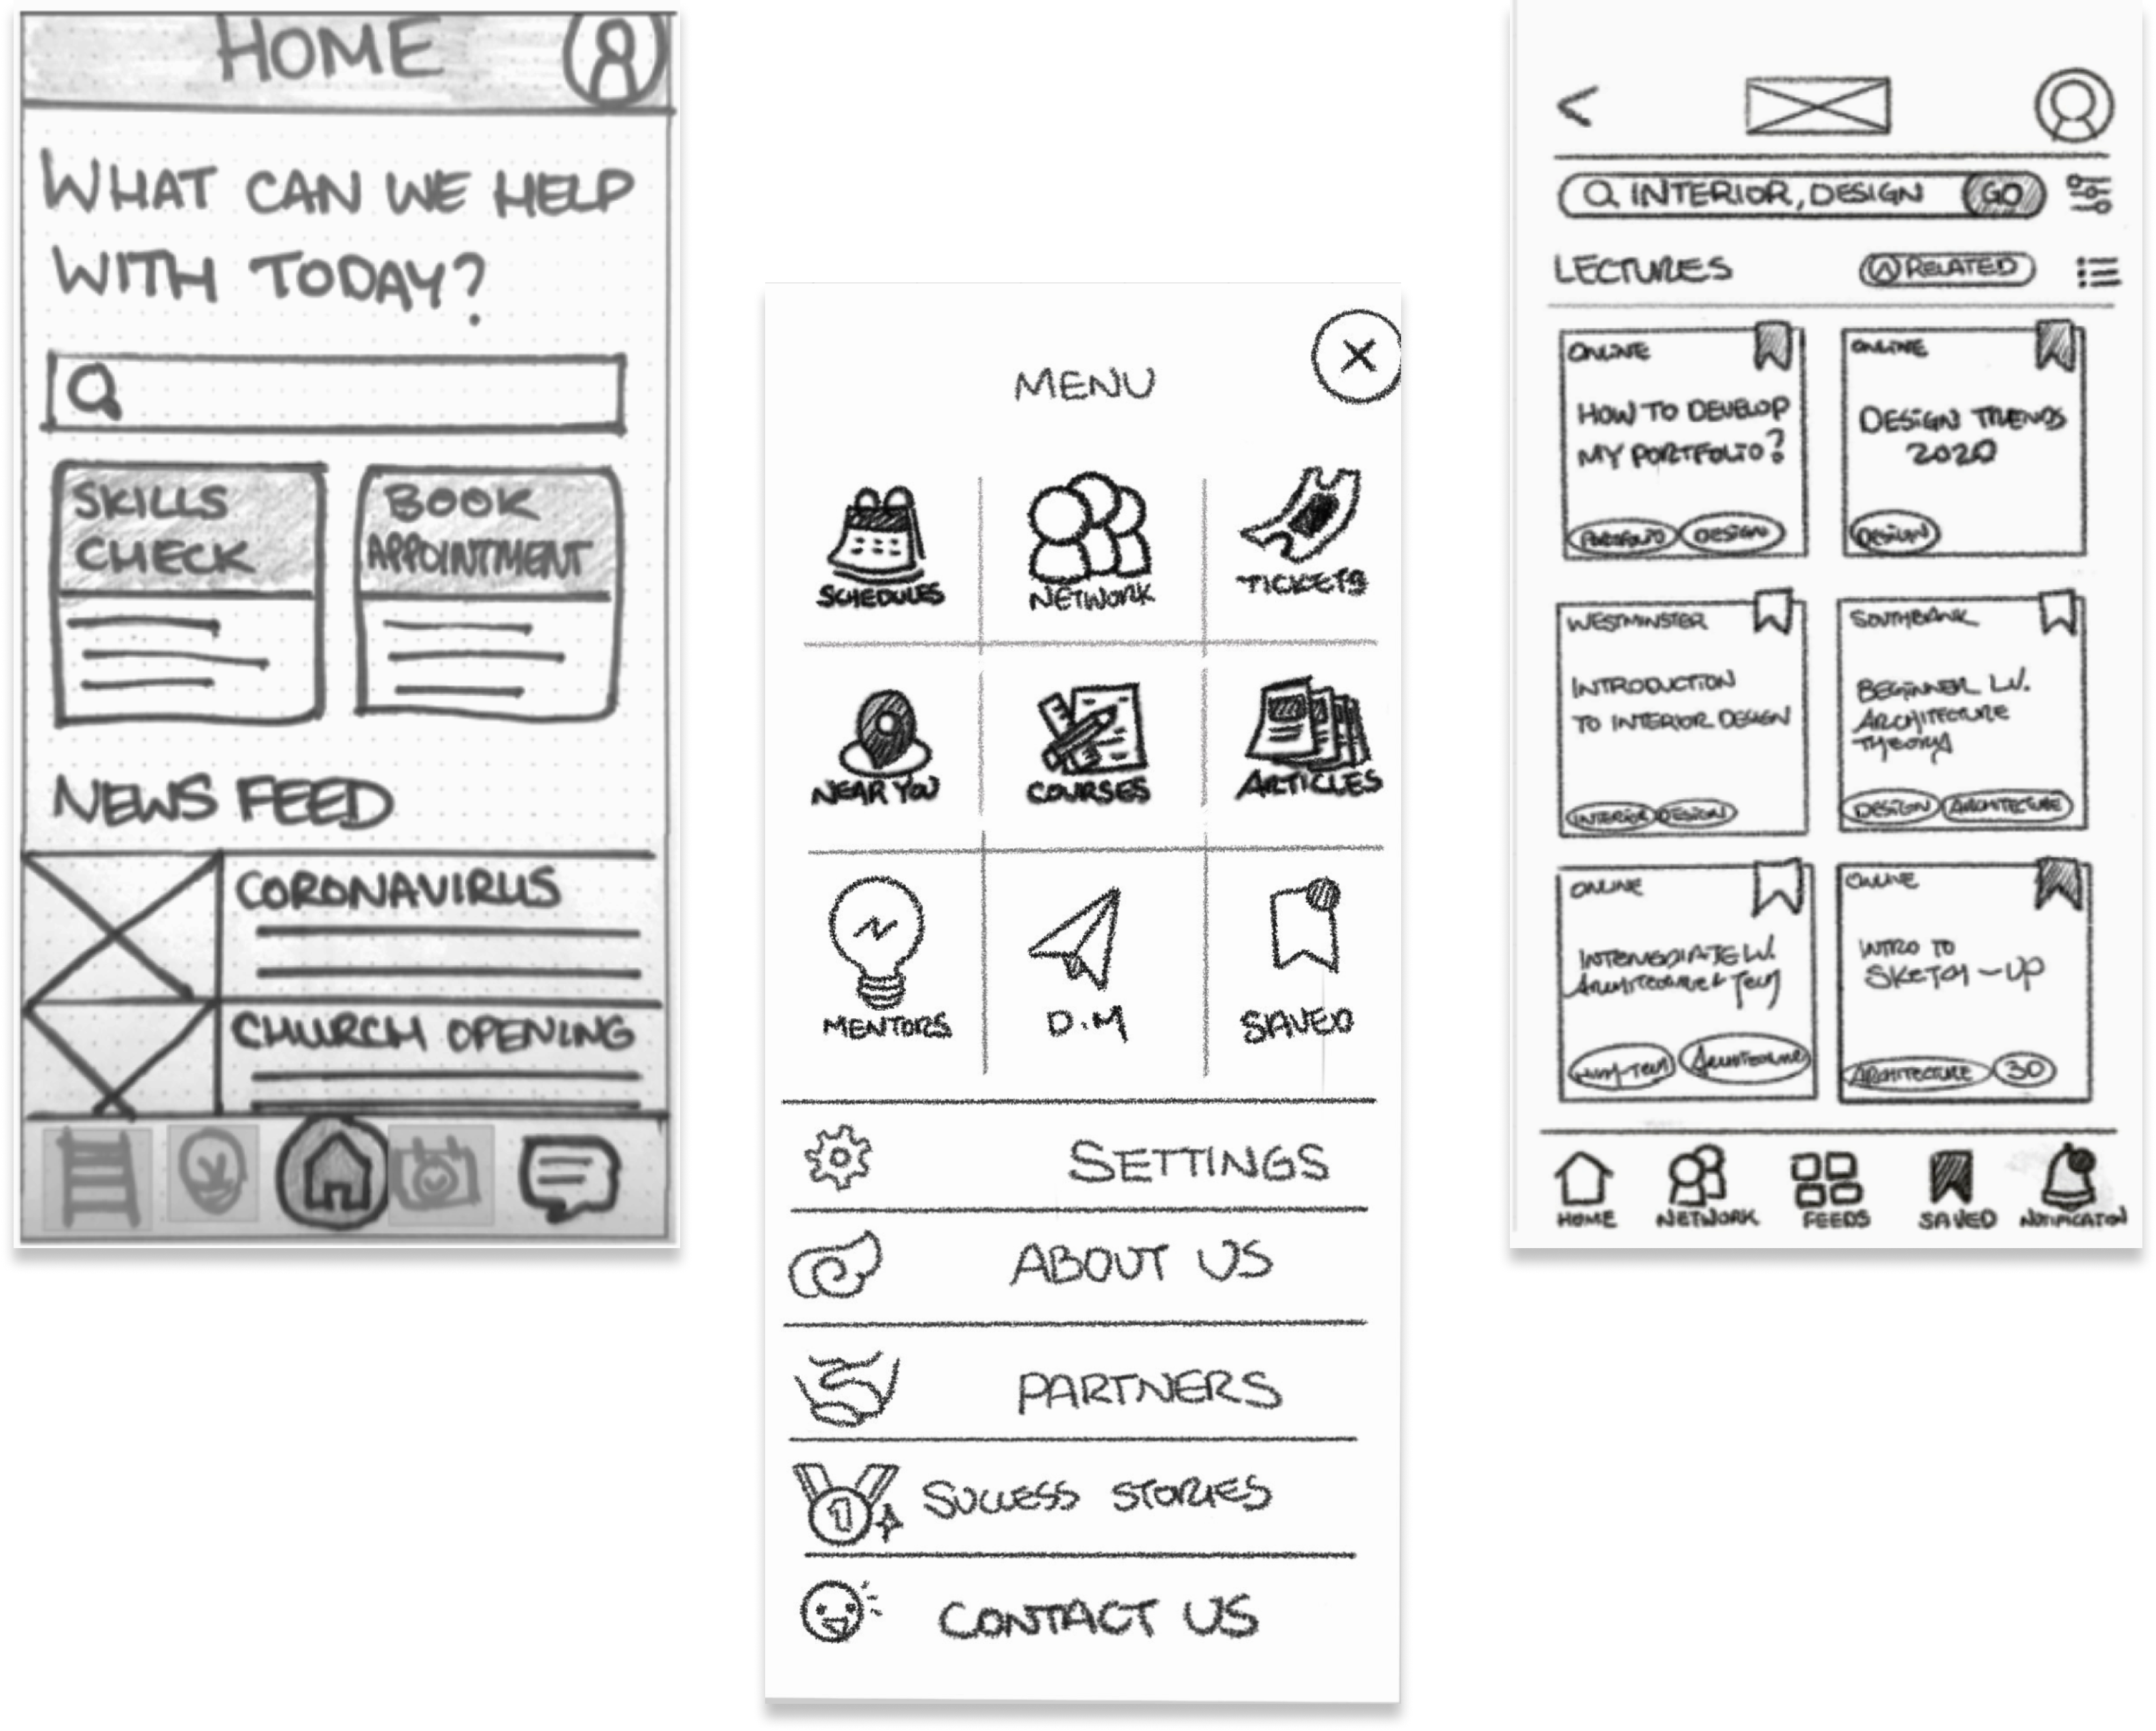 HOME
WHAT CAN WE HELP
WITH TODAY?
SKILLS
CHECK
BOOK
APPOINTMENT
NEWS FEED
CORONAVIRUS
CHURCH OPENING
MENU
SCHEDULES
NETWORK
TICKETS
NEAR YOU
COURSES
ARTICLES
MENTORS
D.M
SAVED
SETTINGS
ABOUT US
PARTNERS
1
SUCCESS STORIES
CONTACT US
<
INTERIOR, DESIGN
GO
LECTURES
RELATED
ONLINE
HOW TO DEVELOP
MY PORTFOLIO?
PORTFOLIO DESIGN
ONLINE
DESIGN TRENDS
2020
DESIGN
WESTMINSTER
INTRODUCTION
TO INTERIOR DESIGN
INTERIOR DESIGN
SOUTHBANK
BEGINNER LV.
ARCHITECTURE
THEORY
DESIGN ARCHITECTURE
ONLINE
INTERMEDIATE LV.
ARCHITECTURE & TECH
ARCHITECTURE
ONLINE
INTRO TO
SKETCH-UP
ARCHITECTURE 3D
HOME
NETWORK
FEEDS
SAVED
NOTIFICATION